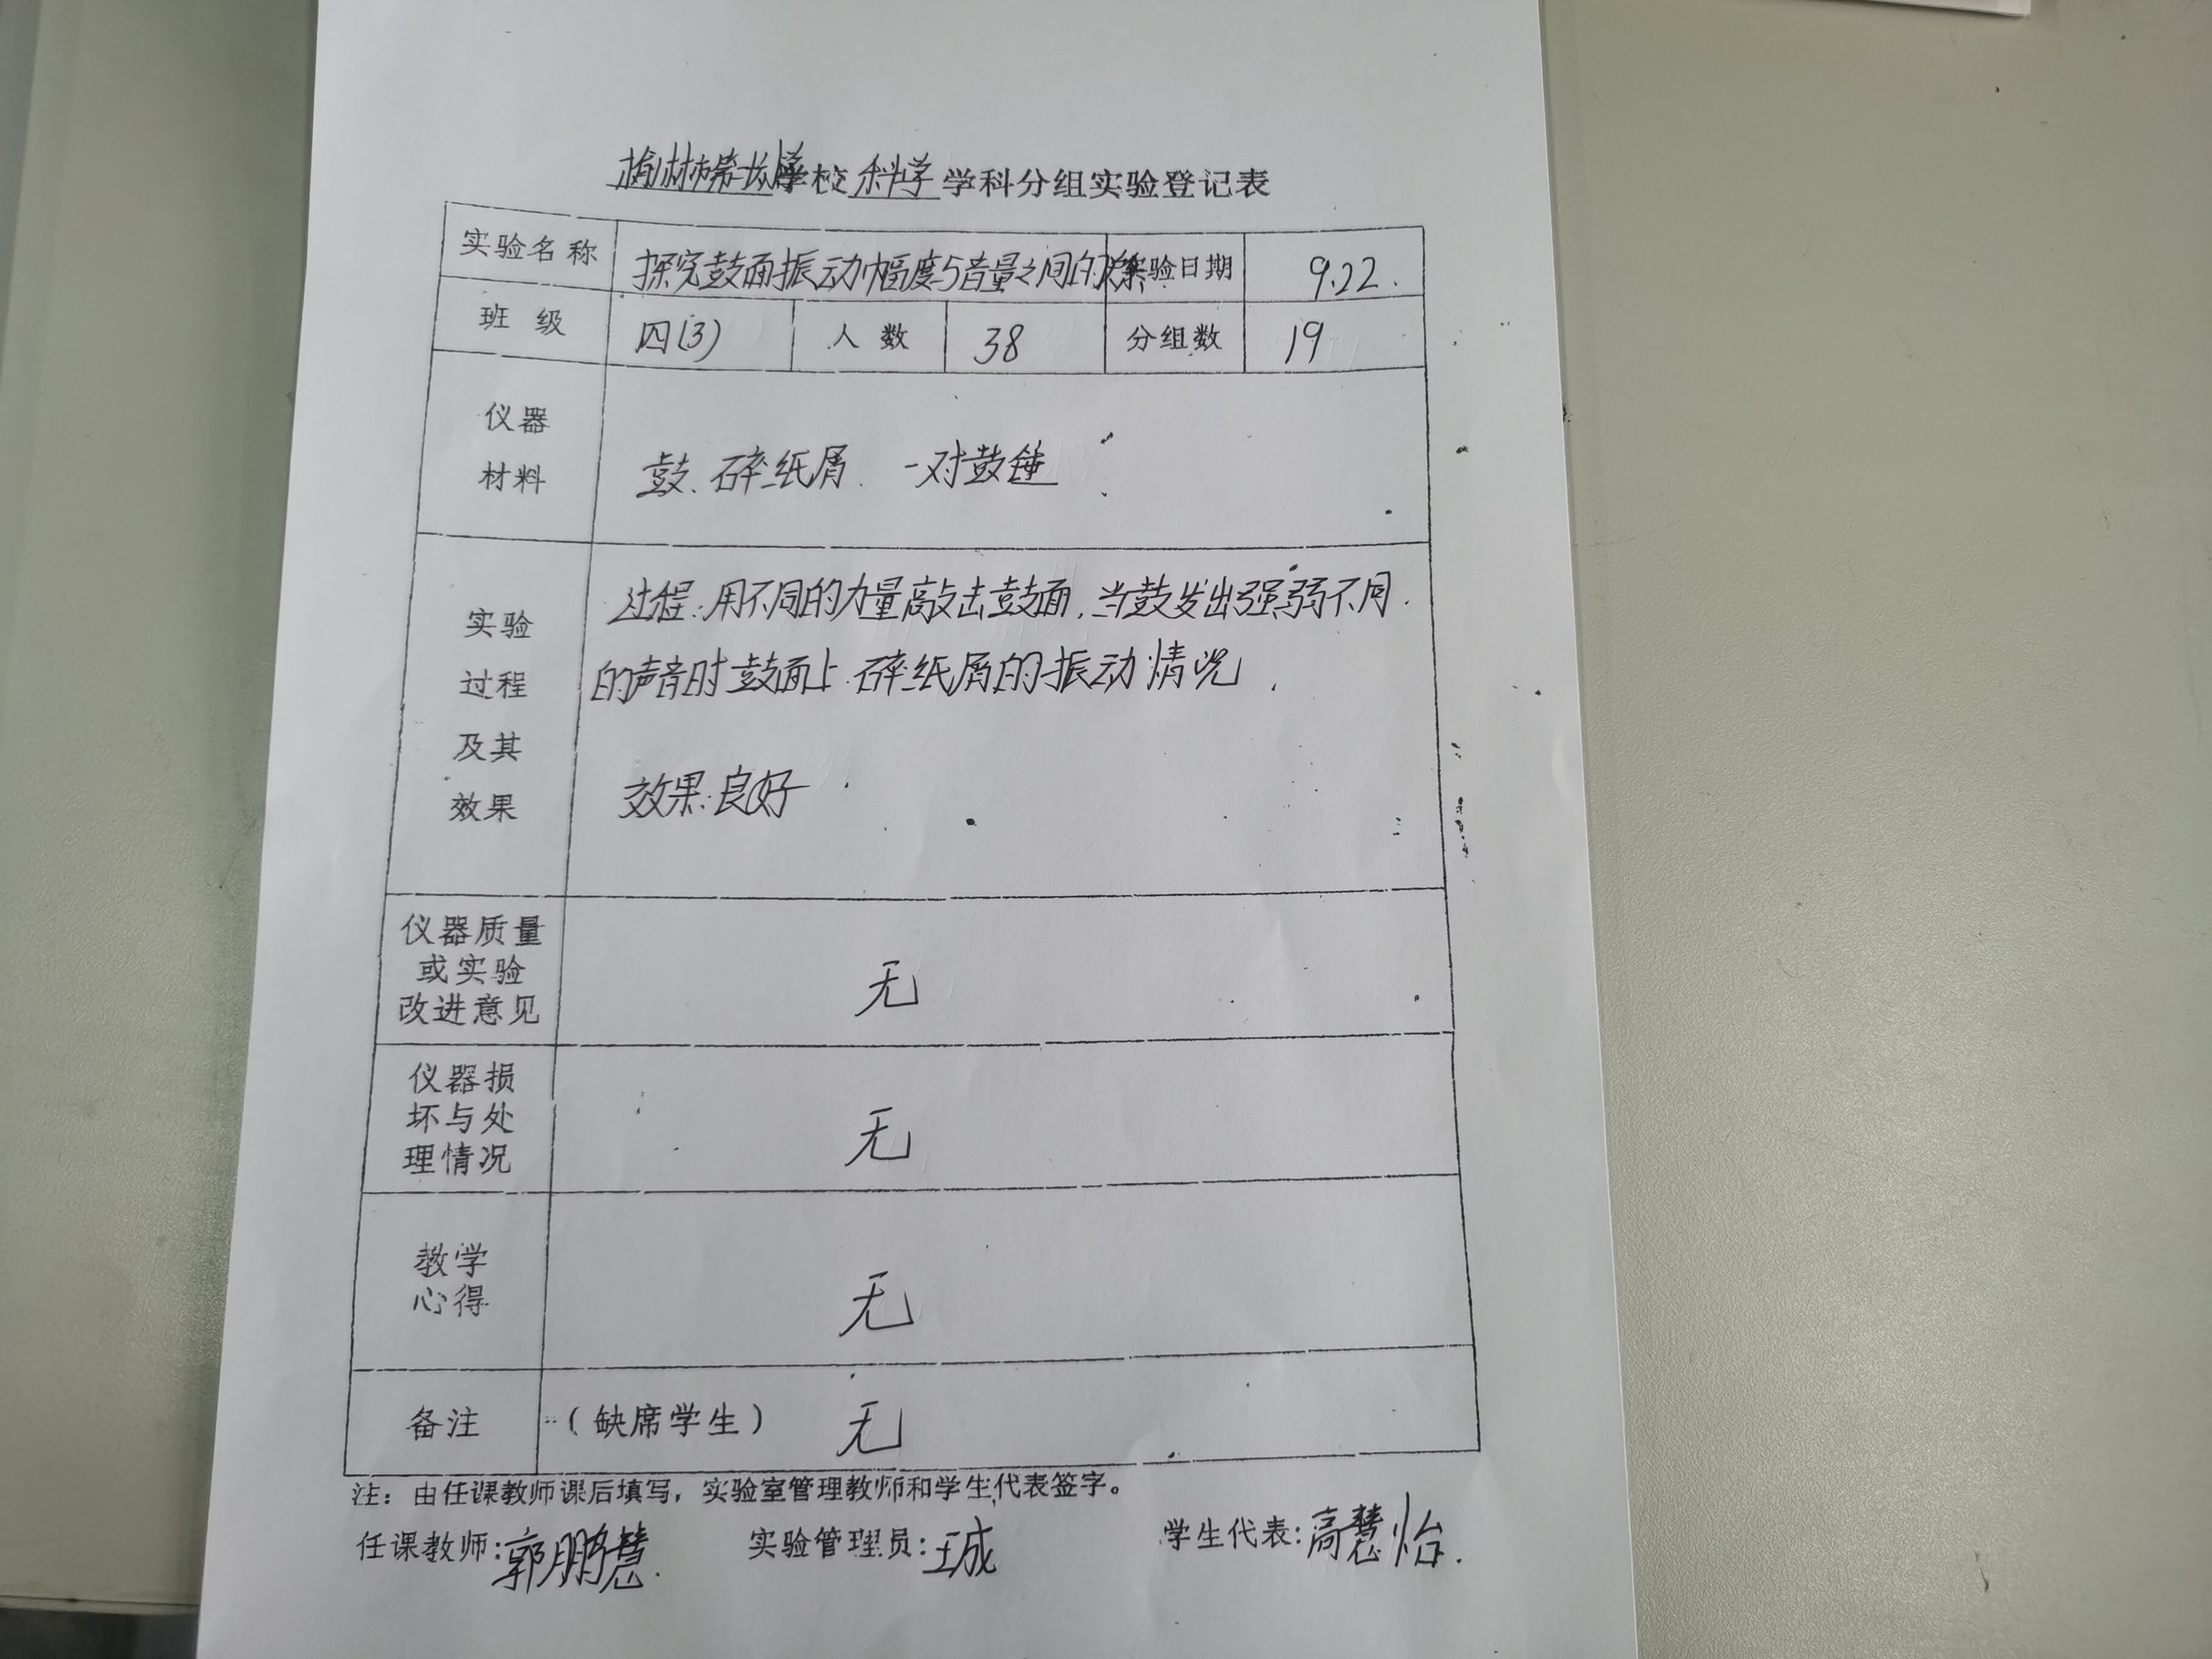 学校 科学 学科分组实验登记表
实验名称 探究鼓面振动幅度与音量之间的关系 实验日期 9.22.
班 级 四(3) 人 数 38 分组数 19
仪器
材料
鼓、碎纸屑、一对鼓锤
实验
过程
及其
效果
过程:用不同的力量敲击鼓面,当鼓发出强弱不同
的声音时鼓面上碎纸屑的振动情况.
效果:良好
仪器质量
或实验
改进意见
无
仪器损
坏与处
理情况
无
教学
心得
无
备注 (缺席学生) 无
注:由任课教师课后填写,实验室管理教师和学生代表签字。
任课教师:郭鹏慧. 实验管理员: 学生代表:高慧怡.